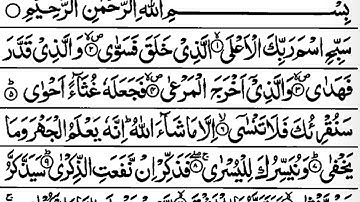 بِسْمِ اللّٰهِ الرَّحْمٰنِ الرَّحِيْمِ
سَبِّحِ اسْمَ رَبِّكَ الْاَعْلَى ۙ﴿۱﴾ الَّذِيْ خَلَقَ فَسَوّٰى ۪ۙ﴿۲﴾ وَالَّذِيْ قَدَّرَ
فَهَدٰى ۪ۙ﴿۳﴾ وَالَّذِيْۤ اَخْرَجَ الْمَرْعٰى ۪ۙ﴿۴﴾ فَجَعَلَهٗ غُثَآءً اَحْوٰى ؕ﴿۵﴾
سَنُقْرِئُكَ فَلَا تَنْسٰۤى ۙ﴿۶﴾ اِلَّا مَا شَآءَ اللّٰهُ ؕ اِنَّهٗ يَعْلَمُ الْجَهْرَ وَمَا
يَخْفٰى ؕ﴿۷﴾ وَنُيَسِّرُكَ لِلْيُسْرٰى ۚۖ﴿۸﴾ فَذَكِّرْ اِنْ نَّفَعَتِ الذِّكْرٰى ؕ﴿۹﴾ سَيَذَّكَّرُ